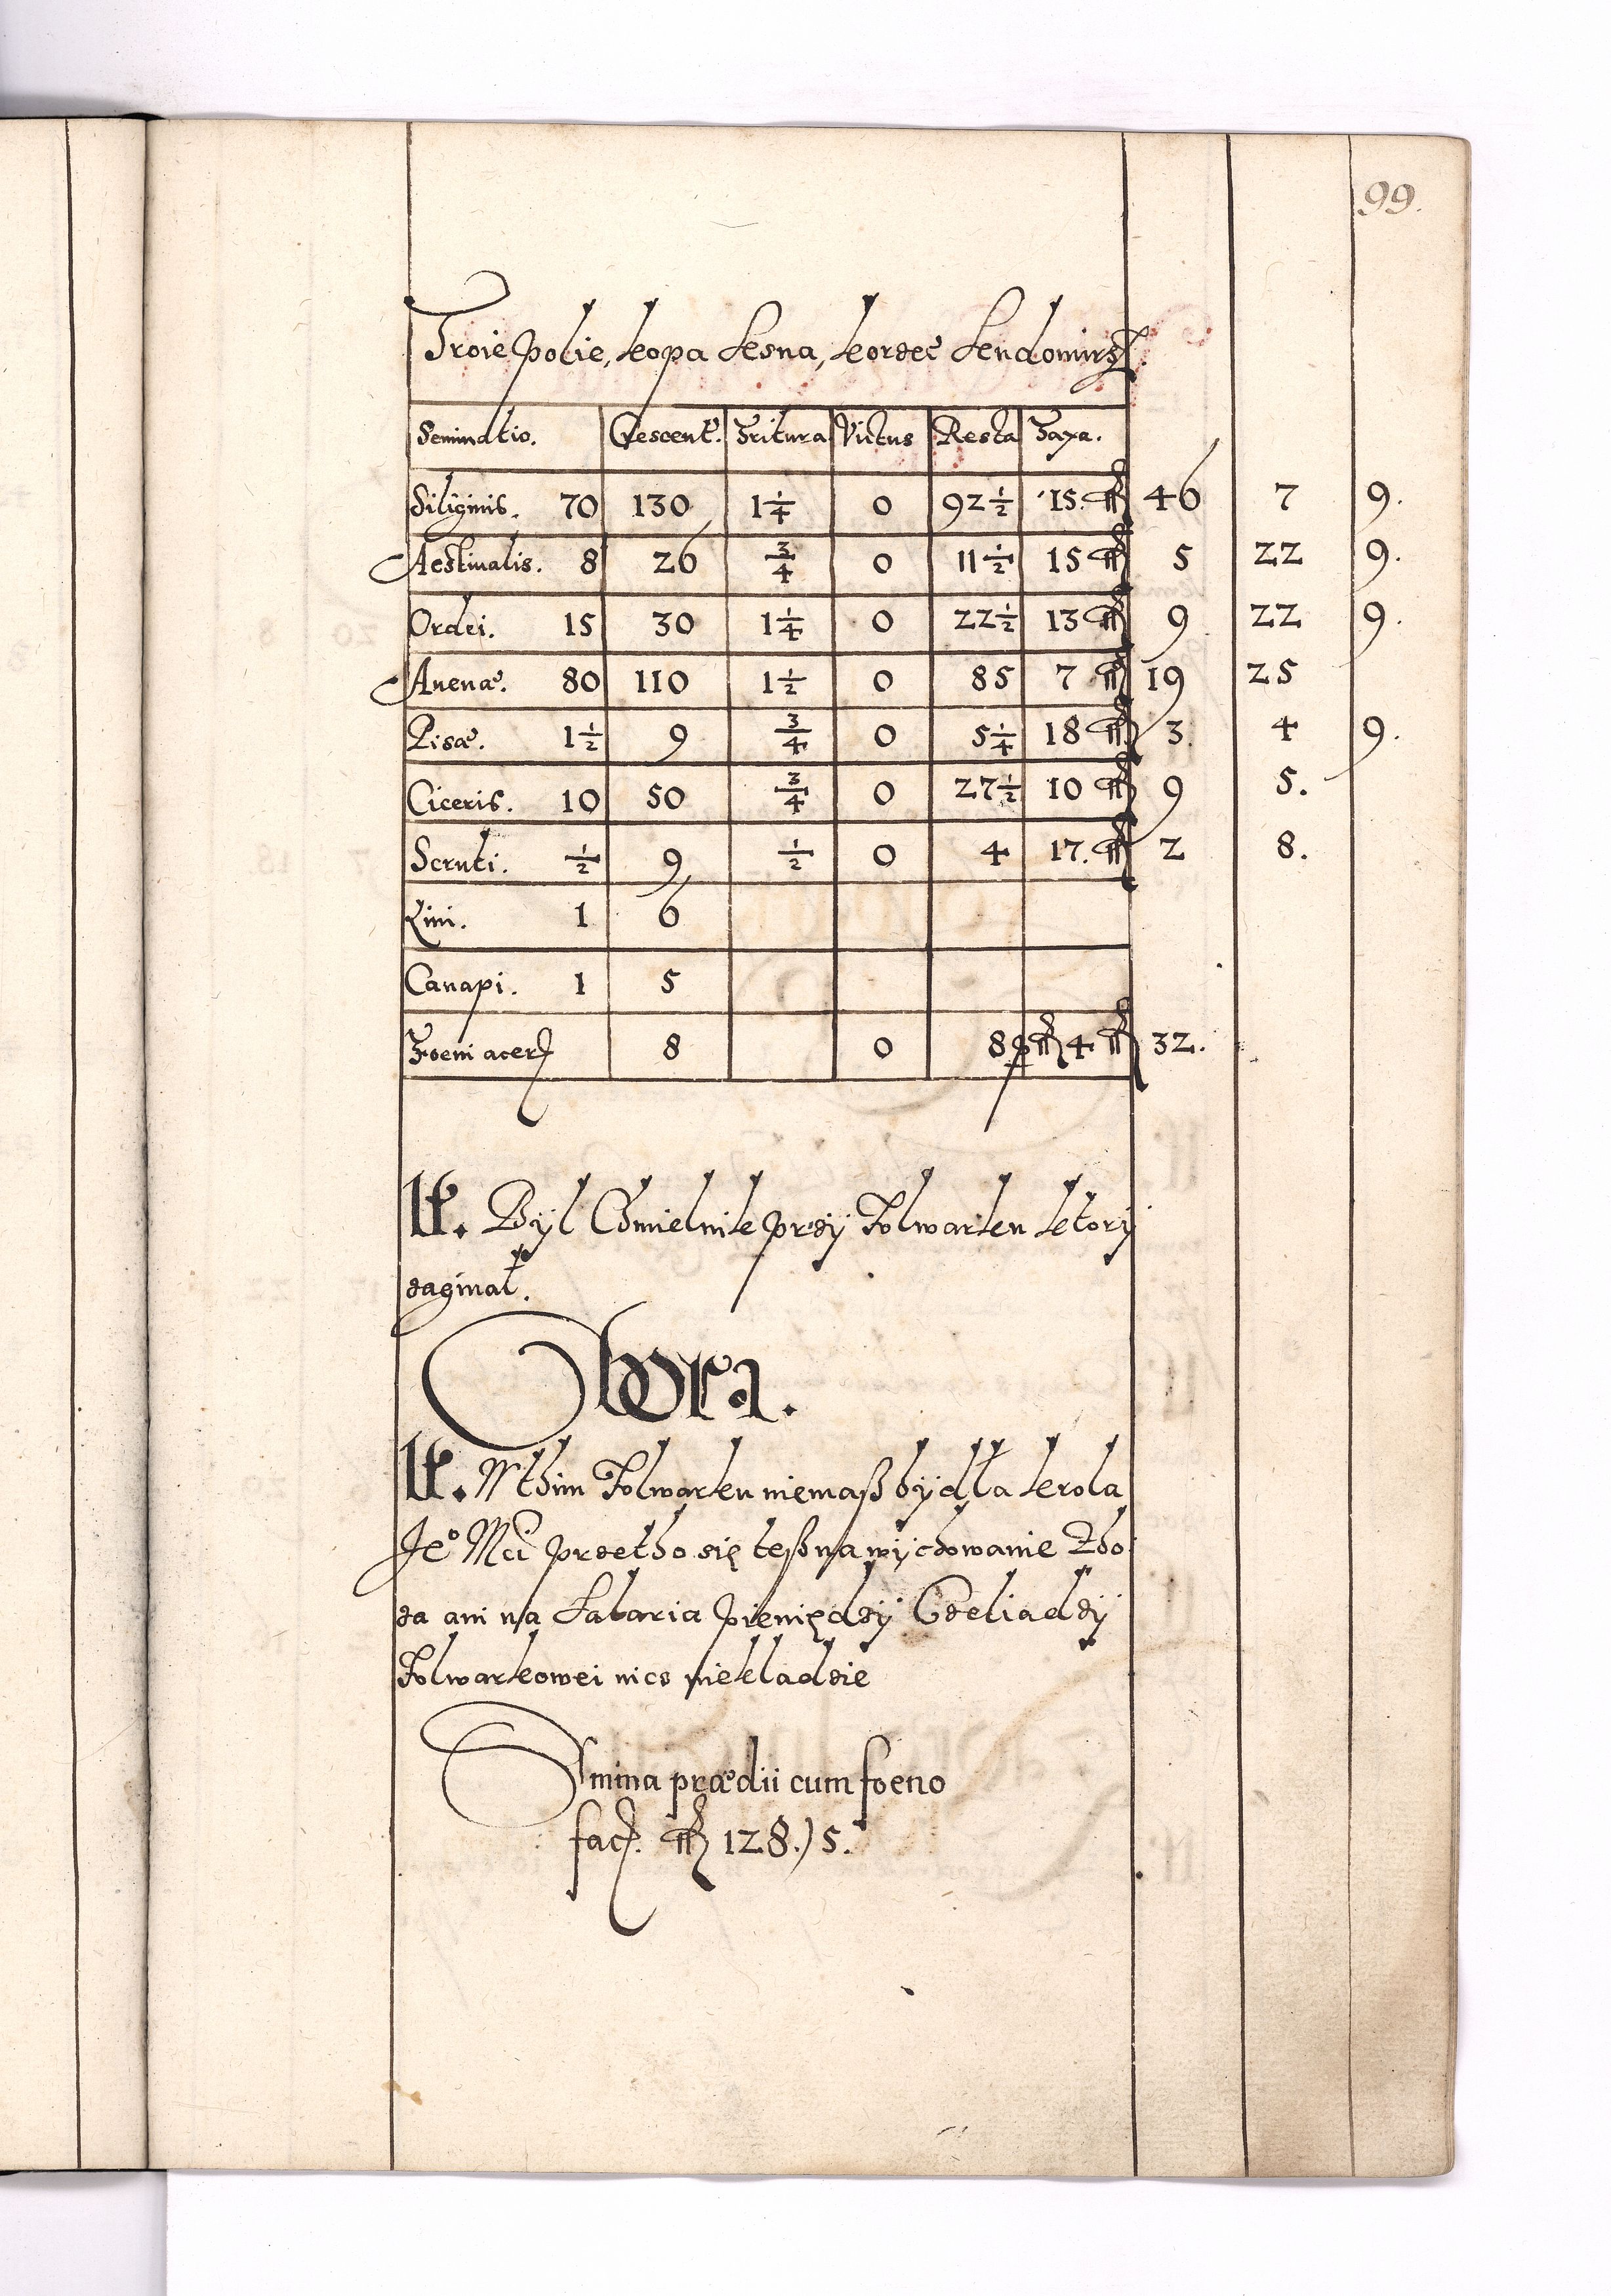 99.
Troie polie, kopa kesna, korzec kendomirsk.
Seminatio. Crescent. Tritura Victus Resta Taxa.
Siliginis. 70 130 1 1/4 0 92 1/2 15. 46 7 9.
Aestiualis. 8 26 3/4 0 11 1/2 15 5 22 9.
Ordei. 15 30 1 1/4 0 22 1/2 13 9 22 9.
Auenæ. 80 110 1 1/2 0 85 7 19 25
Pisæ. 1 1/2 9 3/4 0 5 1/4 18 3. 4 9.
Ciceris. 10 50 3/4 0 27 1/2 10 9 5.
Scruti. 1/2 9 1/2 0 4 17. 2 8.
Lini. 1 6
Canapi. 1 5
Foeni acer 8 0 8 p 4 32.
It. Byl Chmielnik przy Folwarku ktory
zaginał.
Obora.
It. W thim Folwarku niemaß bydła krola
Je° Mci przetho się teß na wychowanie Zbo
za ani na Salaria pieniędzy Czeliadzy
Folwarkowei nicz niekladzie
Omina prædii cum foeno
fac. 128.) 5.